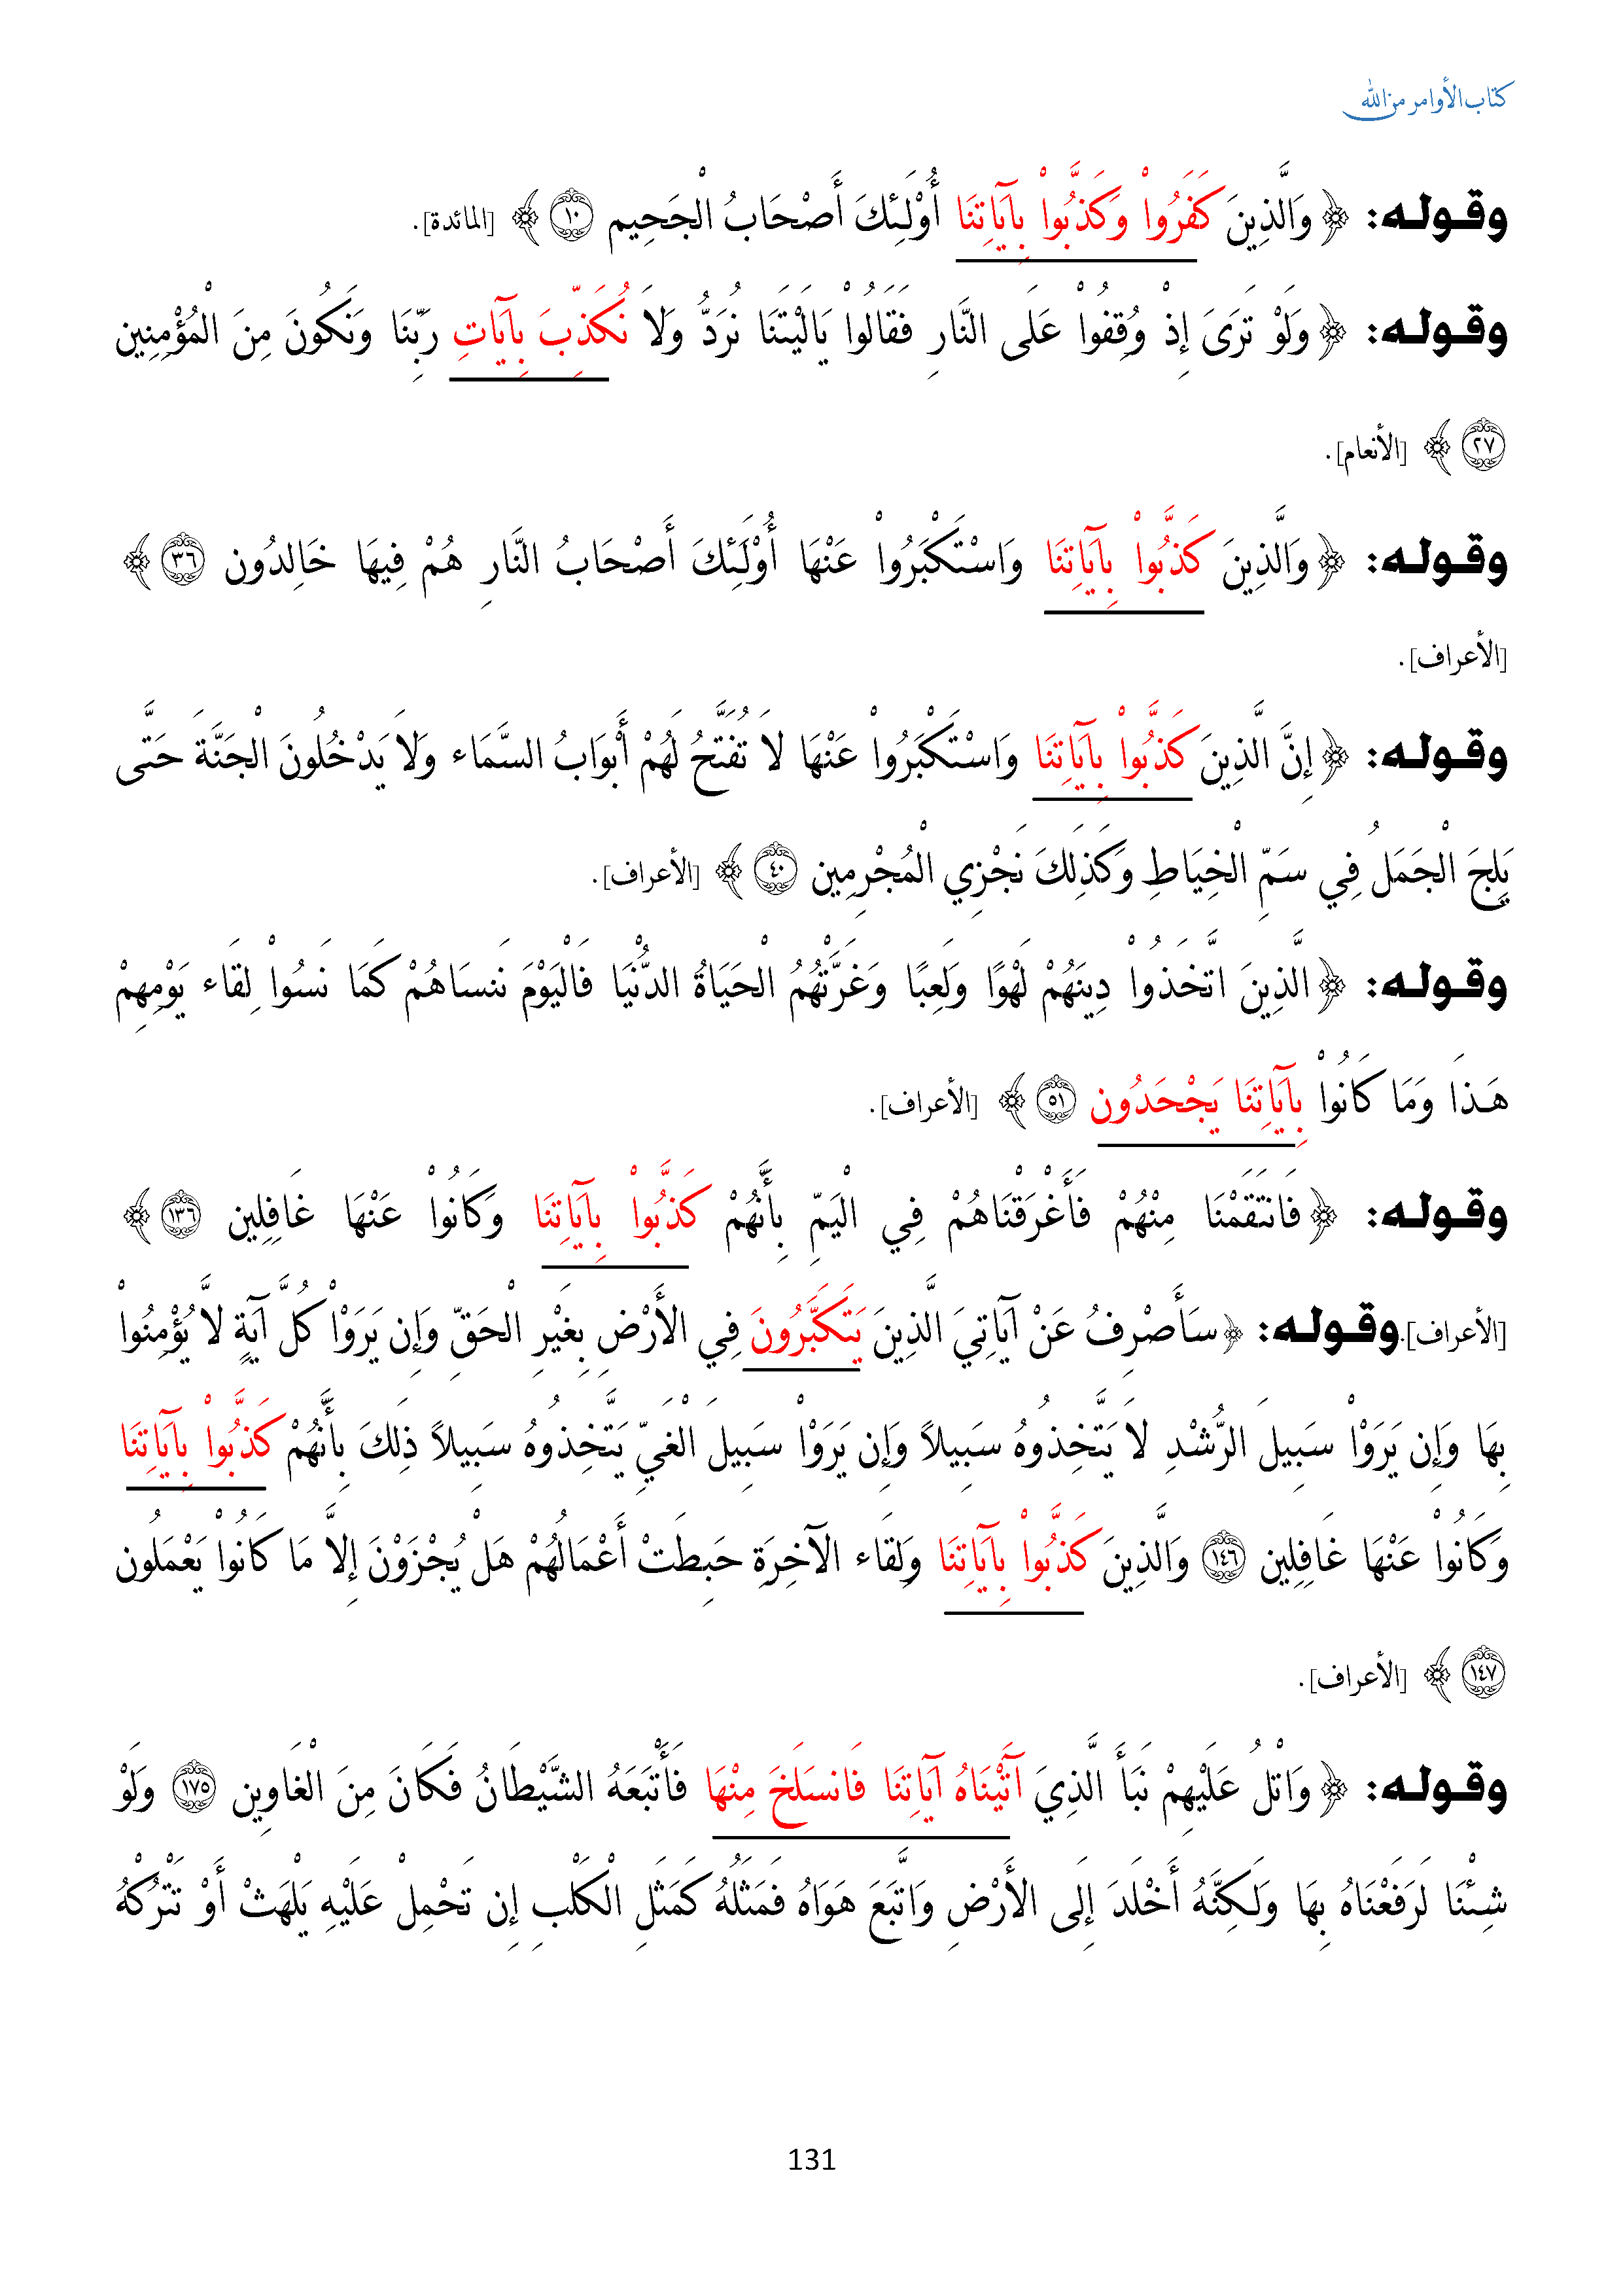 كتاب الأوامر من الله
وقـولـه: ﴿ وَالَّذِينَ كَفَرُواْ وَكَذَّبُواْ بِآيَاتِنَا أُوْلَـئِكَ أَصْحَابُ الْجَحِيم ١٠ ﴾ [المائدة].
وقـولـه: ﴿ وَلَوْ تَرَىَ إِذْ وُقِفُواْ عَلَى النَّارِ فَقَالُواْ يَالَيْتَنَا نُرَدُّ وَلاَ نُكَذِّبَ بِآيَاتِ رَبِّنَا وَنَكُونَ مِنَ الْمُؤْمِنِين
٢٧ ﴾ [الأنعام].
وقـولـه: ﴿ وَالَّذِينَ كَذَّبُواْ بِآيَاتِنَا وَاسْتَكْبَرُواْ عَنْهَا أُوْلَـَئِكَ أَصْحَابُ النَّارِ هُمْ فِيهَا خَالِدُون ٣٦ ﴾
[الأعراف].
وقـولـه: ﴿ إِنَّ الَّذِينَ كَذَّبُواْ بِآيَاتِنَا وَاسْتَكْبَرُواْ عَنْهَا لاَ تُفَتَّحُ لَهُمْ أَبْوَابُ السَّمَاء وَلاَ يَدْخُلُونَ الْجَنَّةَ حَتَّى
يَلِجَ الْجَمَلُ فِي سَمِّ الْخِيَاطِ وَكَذَلِكَ نَجْزِي الْمُجْرِمِين ٤٠ ﴾ [الأعراف].
وقـولـه: ﴿ الَّذِينَ اتَّخَذُواْ دِينَهُمْ لَهْوًا وَلَعِبًا وَغَرَّتْهُمُ الْحَيَاةُ الدُّنْيَا فَالْيَوْمَ نَنسَاهُمْ كَمَا نَسُواْ لِقَاء يَوْمِهِمْ
هَـذَا وَمَا كَانُواْ بِآيَاتِنَا يَجْحَدُون ٥١ ﴾ [الأعراف].
وقـولـه: ﴿ فَانتَقَمْنَا مِنْهُمْ فَأَغْرَقْنَاهُمْ فِي الْيَمِّ بِأَنَّهُمْ كَذَّبُواْ بِآيَاتِنَا وَكَانُواْ عَنْهَا غَافِلِين ١٣٦ ﴾
[الأعراف].وقـولـه: ﴿ سَأَصْرِفُ عَنْ آيَاتِيَ الَّذِينَ يَتَكَبَّرُونَ فِي الأَرْضِ بِغَيْرِ الْحَقِّ وَإِن يَرَوْاْ كُلَّ آيَةٍ لاَّ يُؤْمِنُواْ
بِهَا وَإِن يَرَوْاْ سَبِيلَ الرُّشْدِ لاَ يَتَّخِذُوهُ سَبِيلاً وَإِن يَرَوْاْ سَبِيلَ الْغَيِّ يَتَّخِذُوهُ سَبِيلاً ذَلِكَ بِأَنَّهُمْ كَذَّبُواْ بِآيَاتِنَا
وَكَانُواْ عَنْهَا غَافِلِين ١٤٦ وَالَّذِينَ كَذَّبُواْ بِآيَاتِنَا وَلِقَاء الآخِرَةِ حَبِطَتْ أَعْمَالُهُمْ هَلْ يُجْزَوْنَ إِلاَّ مَا كَانُواْ يَعْمَلُون
١٤٧ ﴾ [الأعراف].
وقـولـه: ﴿ وَاتْلُ عَلَيْهِمْ نَبَأَ الَّذِيَ آتَيْنَاهُ آيَاتِنَا فَانسَلَخَ مِنْهَا فَأَتْبَعَهُ الشَّيْطَانُ فَكَانَ مِنَ الْغَاوِين ١٧٥ وَلَوْ
شِئْنَا لَرَفَعْنَاهُ بِهَا وَلَـكِنَّهُ أَخْلَدَ إِلَى الأَرْضِ وَاتَّبَعَ هَوَاهُ فَمَثَلُهُ كَمَثَلِ الْكَلْبِ إِن تَحْمِلْ عَلَيْهِ يَلْهَثْ أَوْ تَتْرُكْهُ
131